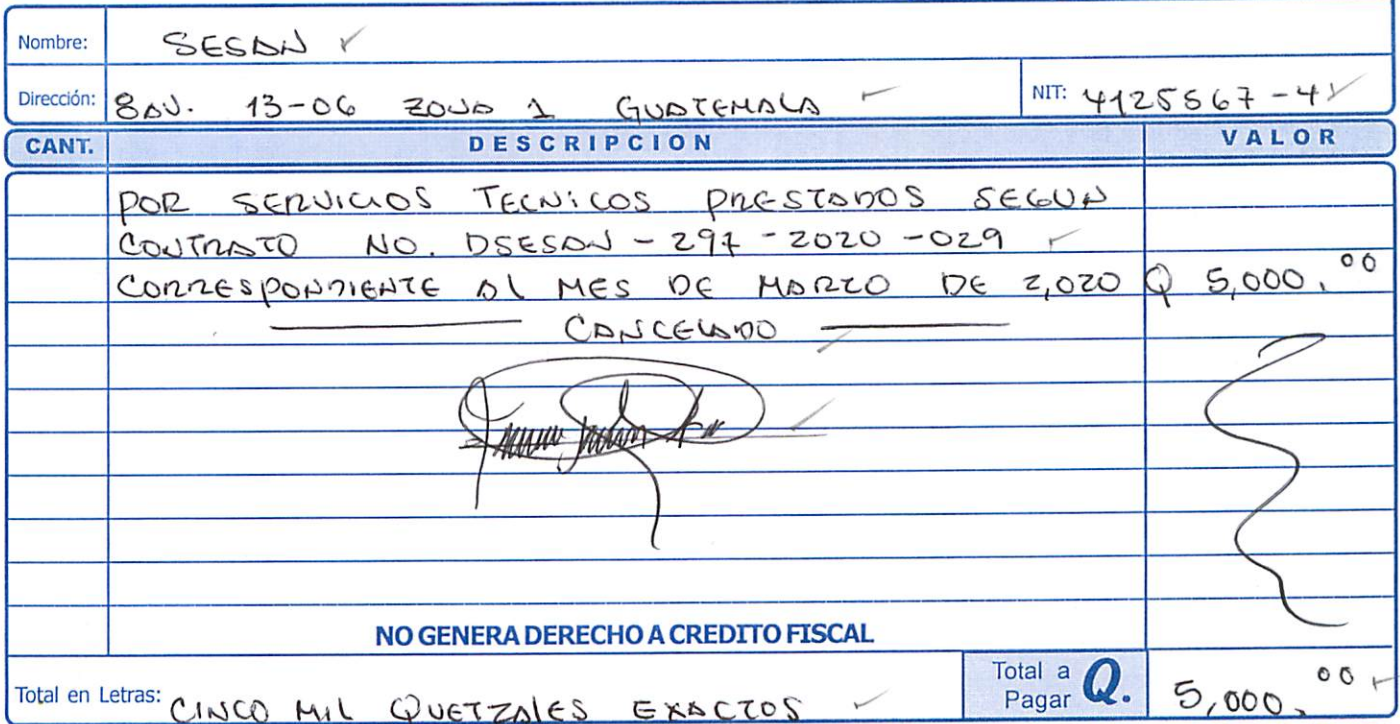 Nombre: SESAN
Dirección: 8AV. 13-06 ZONA 1 GUATEMALA NIT: 4125567-4
CANT. DESCRIPCION VALOR
POR SERVICIOS TECNICOS PRESTADOS SEGUN
CONTRATO NO. DSESAN-297-2020-029
CORRESPONDIENTE AL MES DE MARZO DE 2,020 Q 5,000.00
CANCELADO
NO GENERA DERECHO A CREDITO FISCAL
Total en Letras: CINCO MIL QUETZALES EXACTOS Total a Pagar Q. 5,000.00